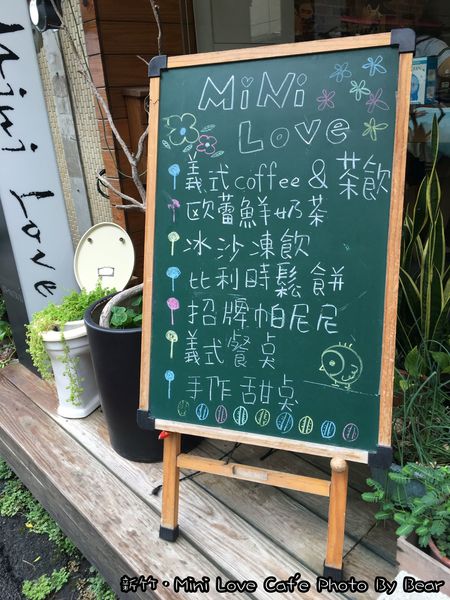 Mini Love
MiNi
Love
義式coffee & 茶飲
欧蕾鮮奶茶
冰沙凍飲
比利時鬆餅
招牌帕尼尼
義式餐桌
手作甜桌
新竹·Mini Love Cafe Photo By Bear